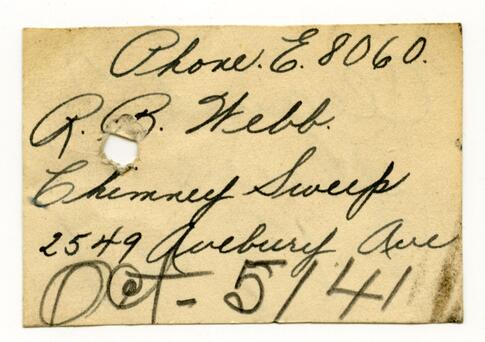 Phone. E. 8060.
R. B. Webb.
Chimney Sweep
2549 Avebury Ave
OCT - 5/41